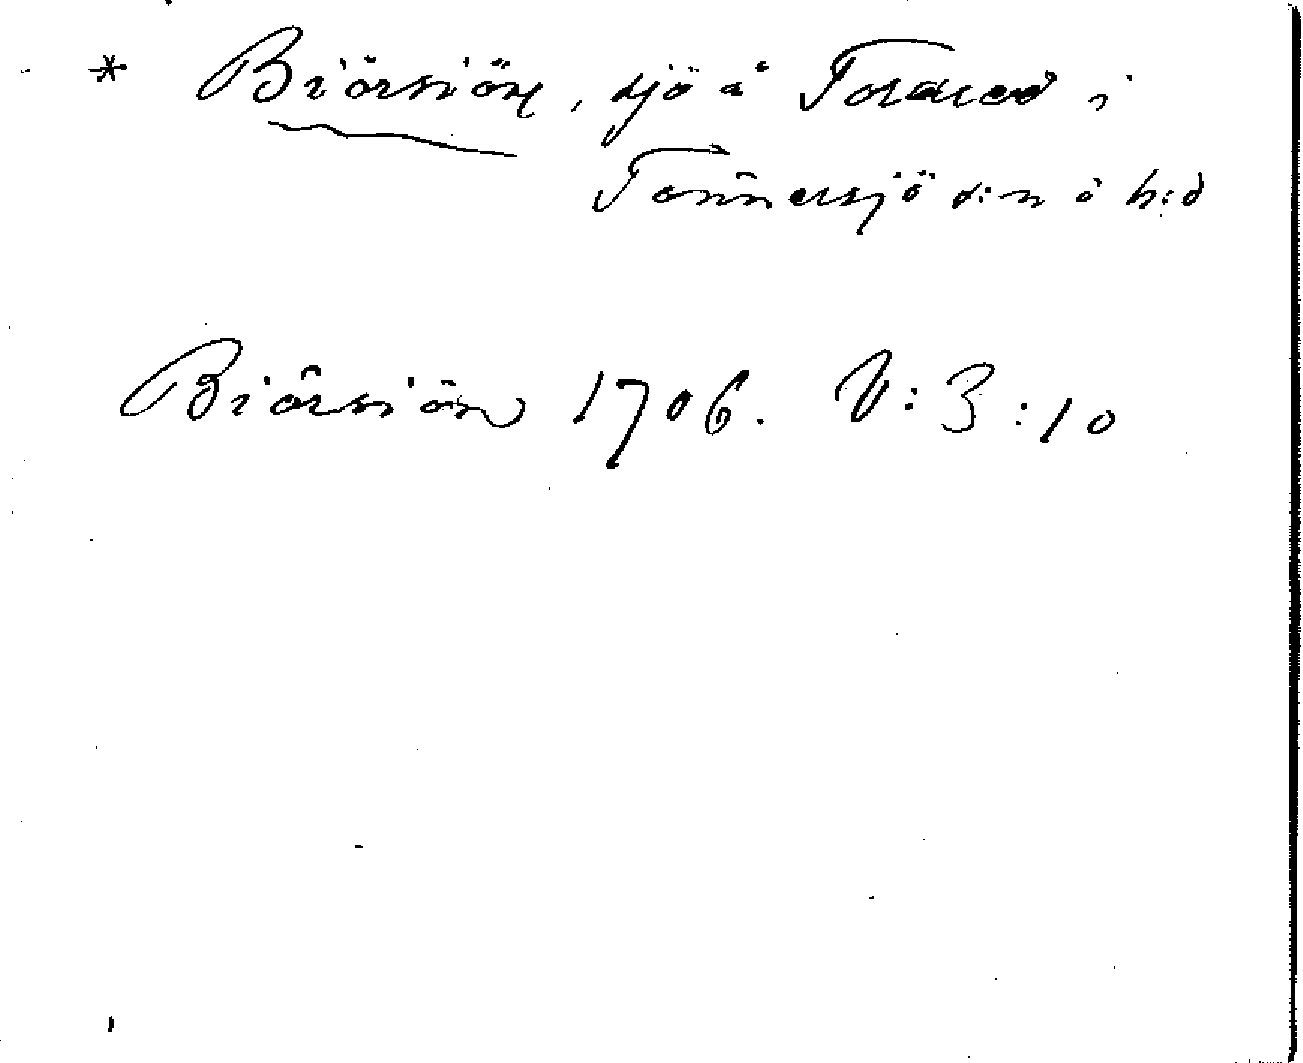 * Biörsiön, sjö å Torared i
Tönnersjö s:n o h:d
Biörsiön 1706. V:3:10